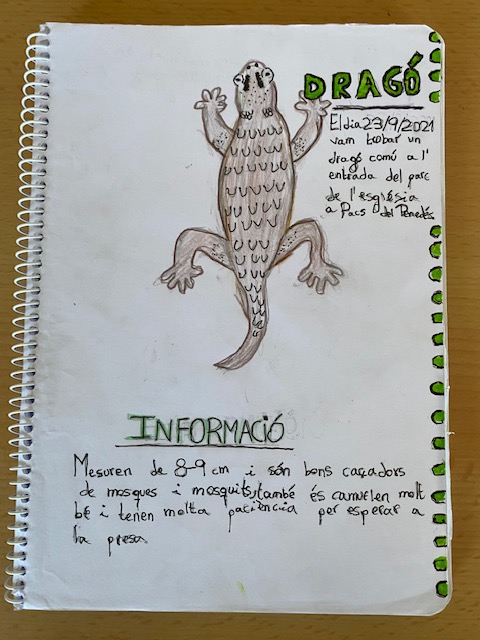 DRAGÓ
El dia 23/9/2021
vam trobar un
dragó comú a l'
entrada del parc
de l'església
a Pacs del Penedés
INFORMACIÓ
Mesuren de 8-9 cm i són bons caçadors
de mosques i mosquits, també és camuflen molt
bé i tenen molta paciència per esperar a
la presa.